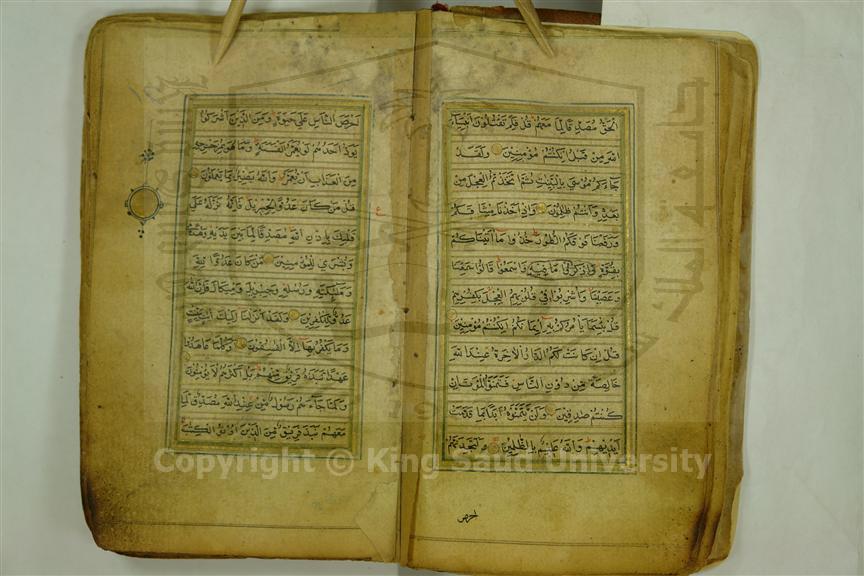 الْحَقُّ مُصَدِّقًا لِمَا مَعَهُمْ قُلْ فَلِمَ تَقْتُلُونَ أَنْبِيَاءَ
اللهِ مِنْ قَبْلُ إِنْ كُنْتُمْ مُؤْمِنِينَ وَلَقَدْ
جَاءَكُمْ مُوسَى بِالْبَيِّنٰتِ ثُمَّ اتَّخَذْتُمُ الْعِجْلَ مِنْ
بَعْدِهِ وَأَنْتُمْ ظٰلِمُونَ وَإِذْ أَخَذْنَا مِيثَاقَكُمْ
وَرَفَعْنَا فَوْقَكُمُ الطُّورَ خُذُوا مَا آتَيْنَاكُمْ
بِقُوَّةٍ وَاذْكُرُوا مَا فِيهِ وَاسْمَعُوا قَالُوا سَمِعْنَا
وَعَصَيْنَا وَأُشْرِبُوا فِي قُلُوبِهِمُ الْعِجْلَ بِكُفْرِهِمْ
قُلْ بِئْسَمَا يَأْمُرُكُمْ بِهِ إِيمَانُكُمْ إِنْ كُنْتُمْ مُؤْمِنِينَ
قُلْ إِنْ كَانَتْ لَكُمُ الدَّارُ الْآخِرَةُ عِنْدَ اللهِ
خَالِصَةً مِنْ دُونِ النَّاسِ فَتَمَنَّوُا الْمَوْتَ إِنْ
كُنْتُمْ صٰدِقِينَ وَلَنْ يَتَمَنَّوْهُ أَبَدًا بِمَا قَدَّمَتْ
أَيْدِيهِمْ وَاللهُ عَلِيمٌ بِالظّٰلِمِينَ وَلَتَجِدَنَّهُمْ
احرص
أَحْرَصَ النَّاسِ عَلَى حَيٰوةٍ وَمِنَ الَّذِينَ أَشْرَكُوا
يَوَدُّ أَحَدُهُمْ لَوْ يُعَمَّرُ أَلْفَ سَنَةٍ وَمَا هُوَ بِمُزَحْزِحِهِ
مِنَ الْعَذَابِ أَنْ يُعَمَّرَ وَاللهُ بَصِيرٌ بِمَا يَعْمَلُونَ
قُلْ مَنْ كَانَ عَدُوًّا لِجِبْرِيلَ فَإِنَّهُ نَزَّلَهُ عَلَى
قَلْبِكَ بِإِذْنِ اللهِ مُصَدِّقًا لِمَا بَيْنَ يَدَيْهِ وَهُدًى
وَبُشْرَى لِلْمُؤْمِنِينَ مَنْ كَانَ عَدُوًّا لِلهِ
وَمَلٰئِكَتِهِ وَرُسُلِهِ وَجِبْرِيلَ وَمِيكَالَ فَإِنَّ اللهَ
عَدُوٌّ لِلْكٰفِرِينَ وَلَقَدْ أَنْزَلْنَا إِلَيْكَ آيٰتٍ بَيِّنٰتٍ
وَمَا يَكْفُرُ بِهَا إِلَّا الْفٰسِقُونَ أَوَكُلَّمَا عَاهَدُوا
عَهْدًا نَبَذَهُ فَرِيقٌ مِنْهُمْ بَلْ أَكْثَرُهُمْ لَا يُؤْمِنُونَ
وَلَمَّا جَاءَهُمْ رَسُولٌ مِنْ عِنْدِ اللهِ مُصَدِّقٌ لِمَا
مَعَهُمْ نَبَذَ فَرِيقٌ مِنَ الَّذِينَ أُوتُوا الْكِتٰبَ
Copyright © King Saud University